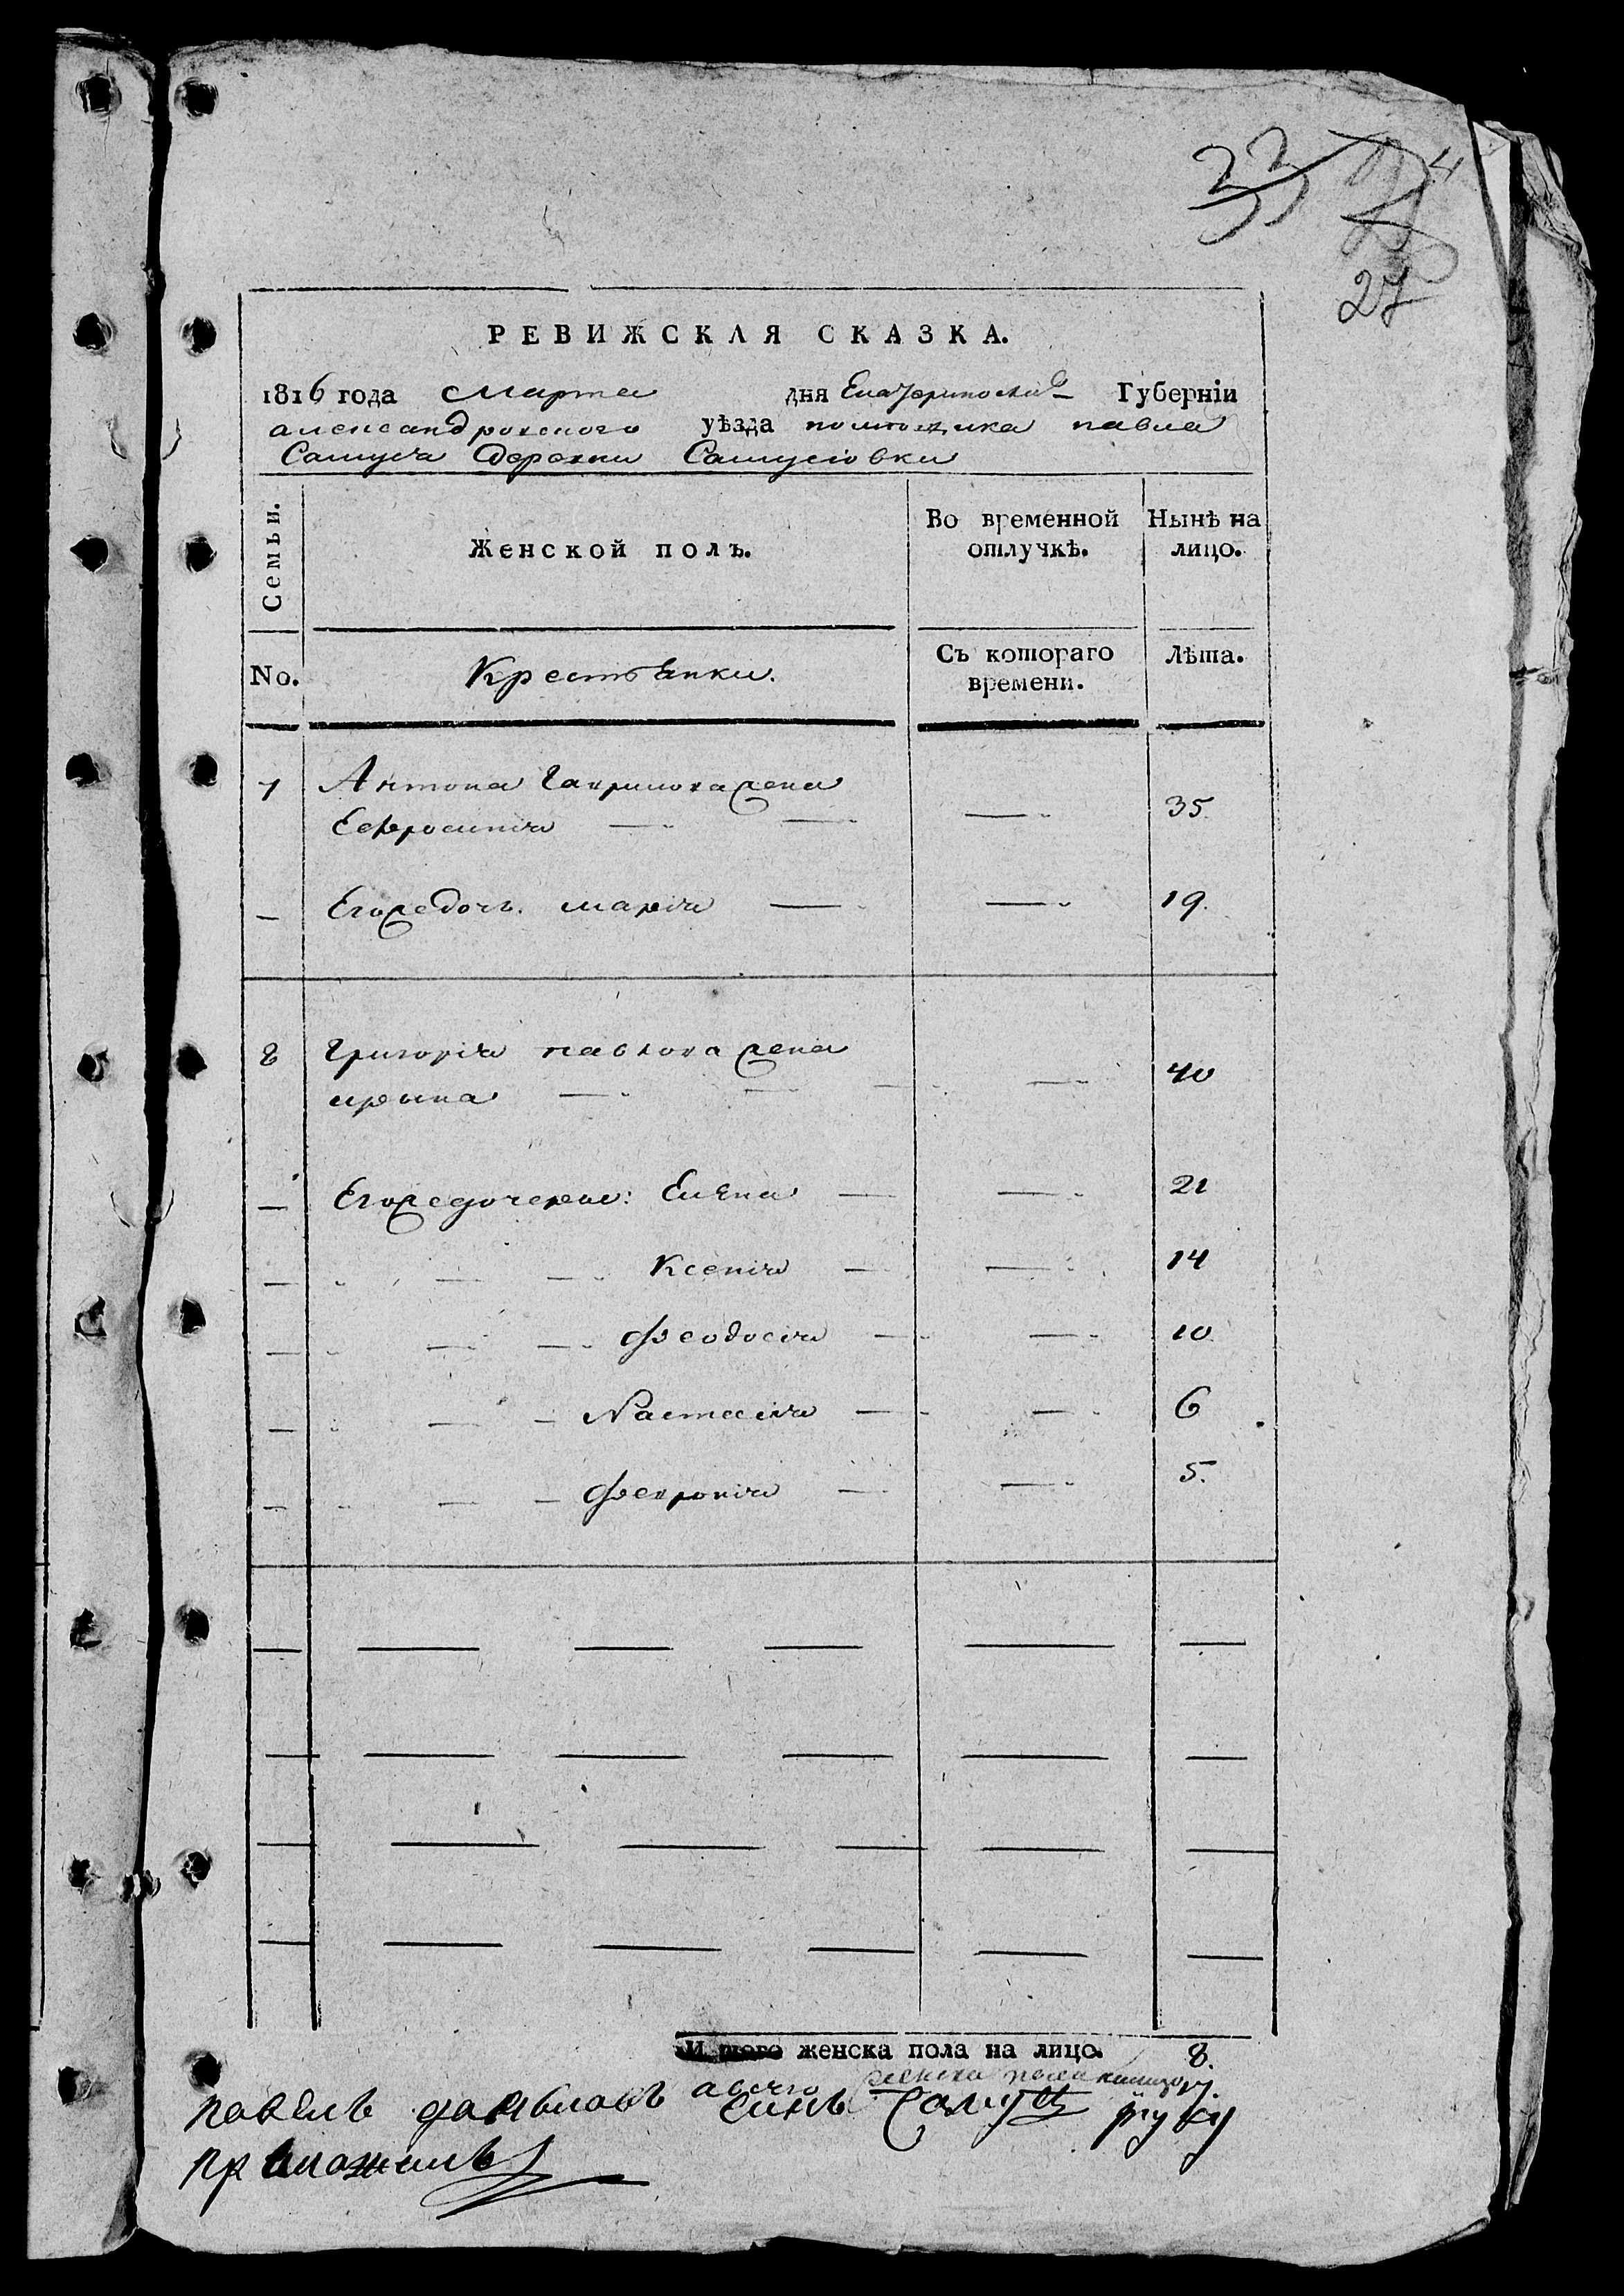 33
27
РЕВИЖСКАЯ СКАЗКА.
1816 года Марта дня Екатеринослав Губерніи
александровского уѣзда помѣщика павла
Самуся Деревни Самусіовки
Семьи.
Женской полъ.
Во временной отлучкѣ.
Нынѣ на лицо.
No.
Крестьянки.
Съ котораго времени.
Лѣта.
7 Антона Гаврилова жена
Ефросинія — — — 35.
— Егожедочь. марія — — 19.
8 Григорія павлова жена
ирына — — — — 40
— Егожедочери: Елена — — 21
— — — Ксенія — — 14
— — — Феодосія — — 10
— — — Настасія — — 6
— — — Февронія — — 5.
Итого женска пола на лицо. 8.
а всего женска пола налицо
павелъ даныловъ синъ Самусь руку
приложилъ